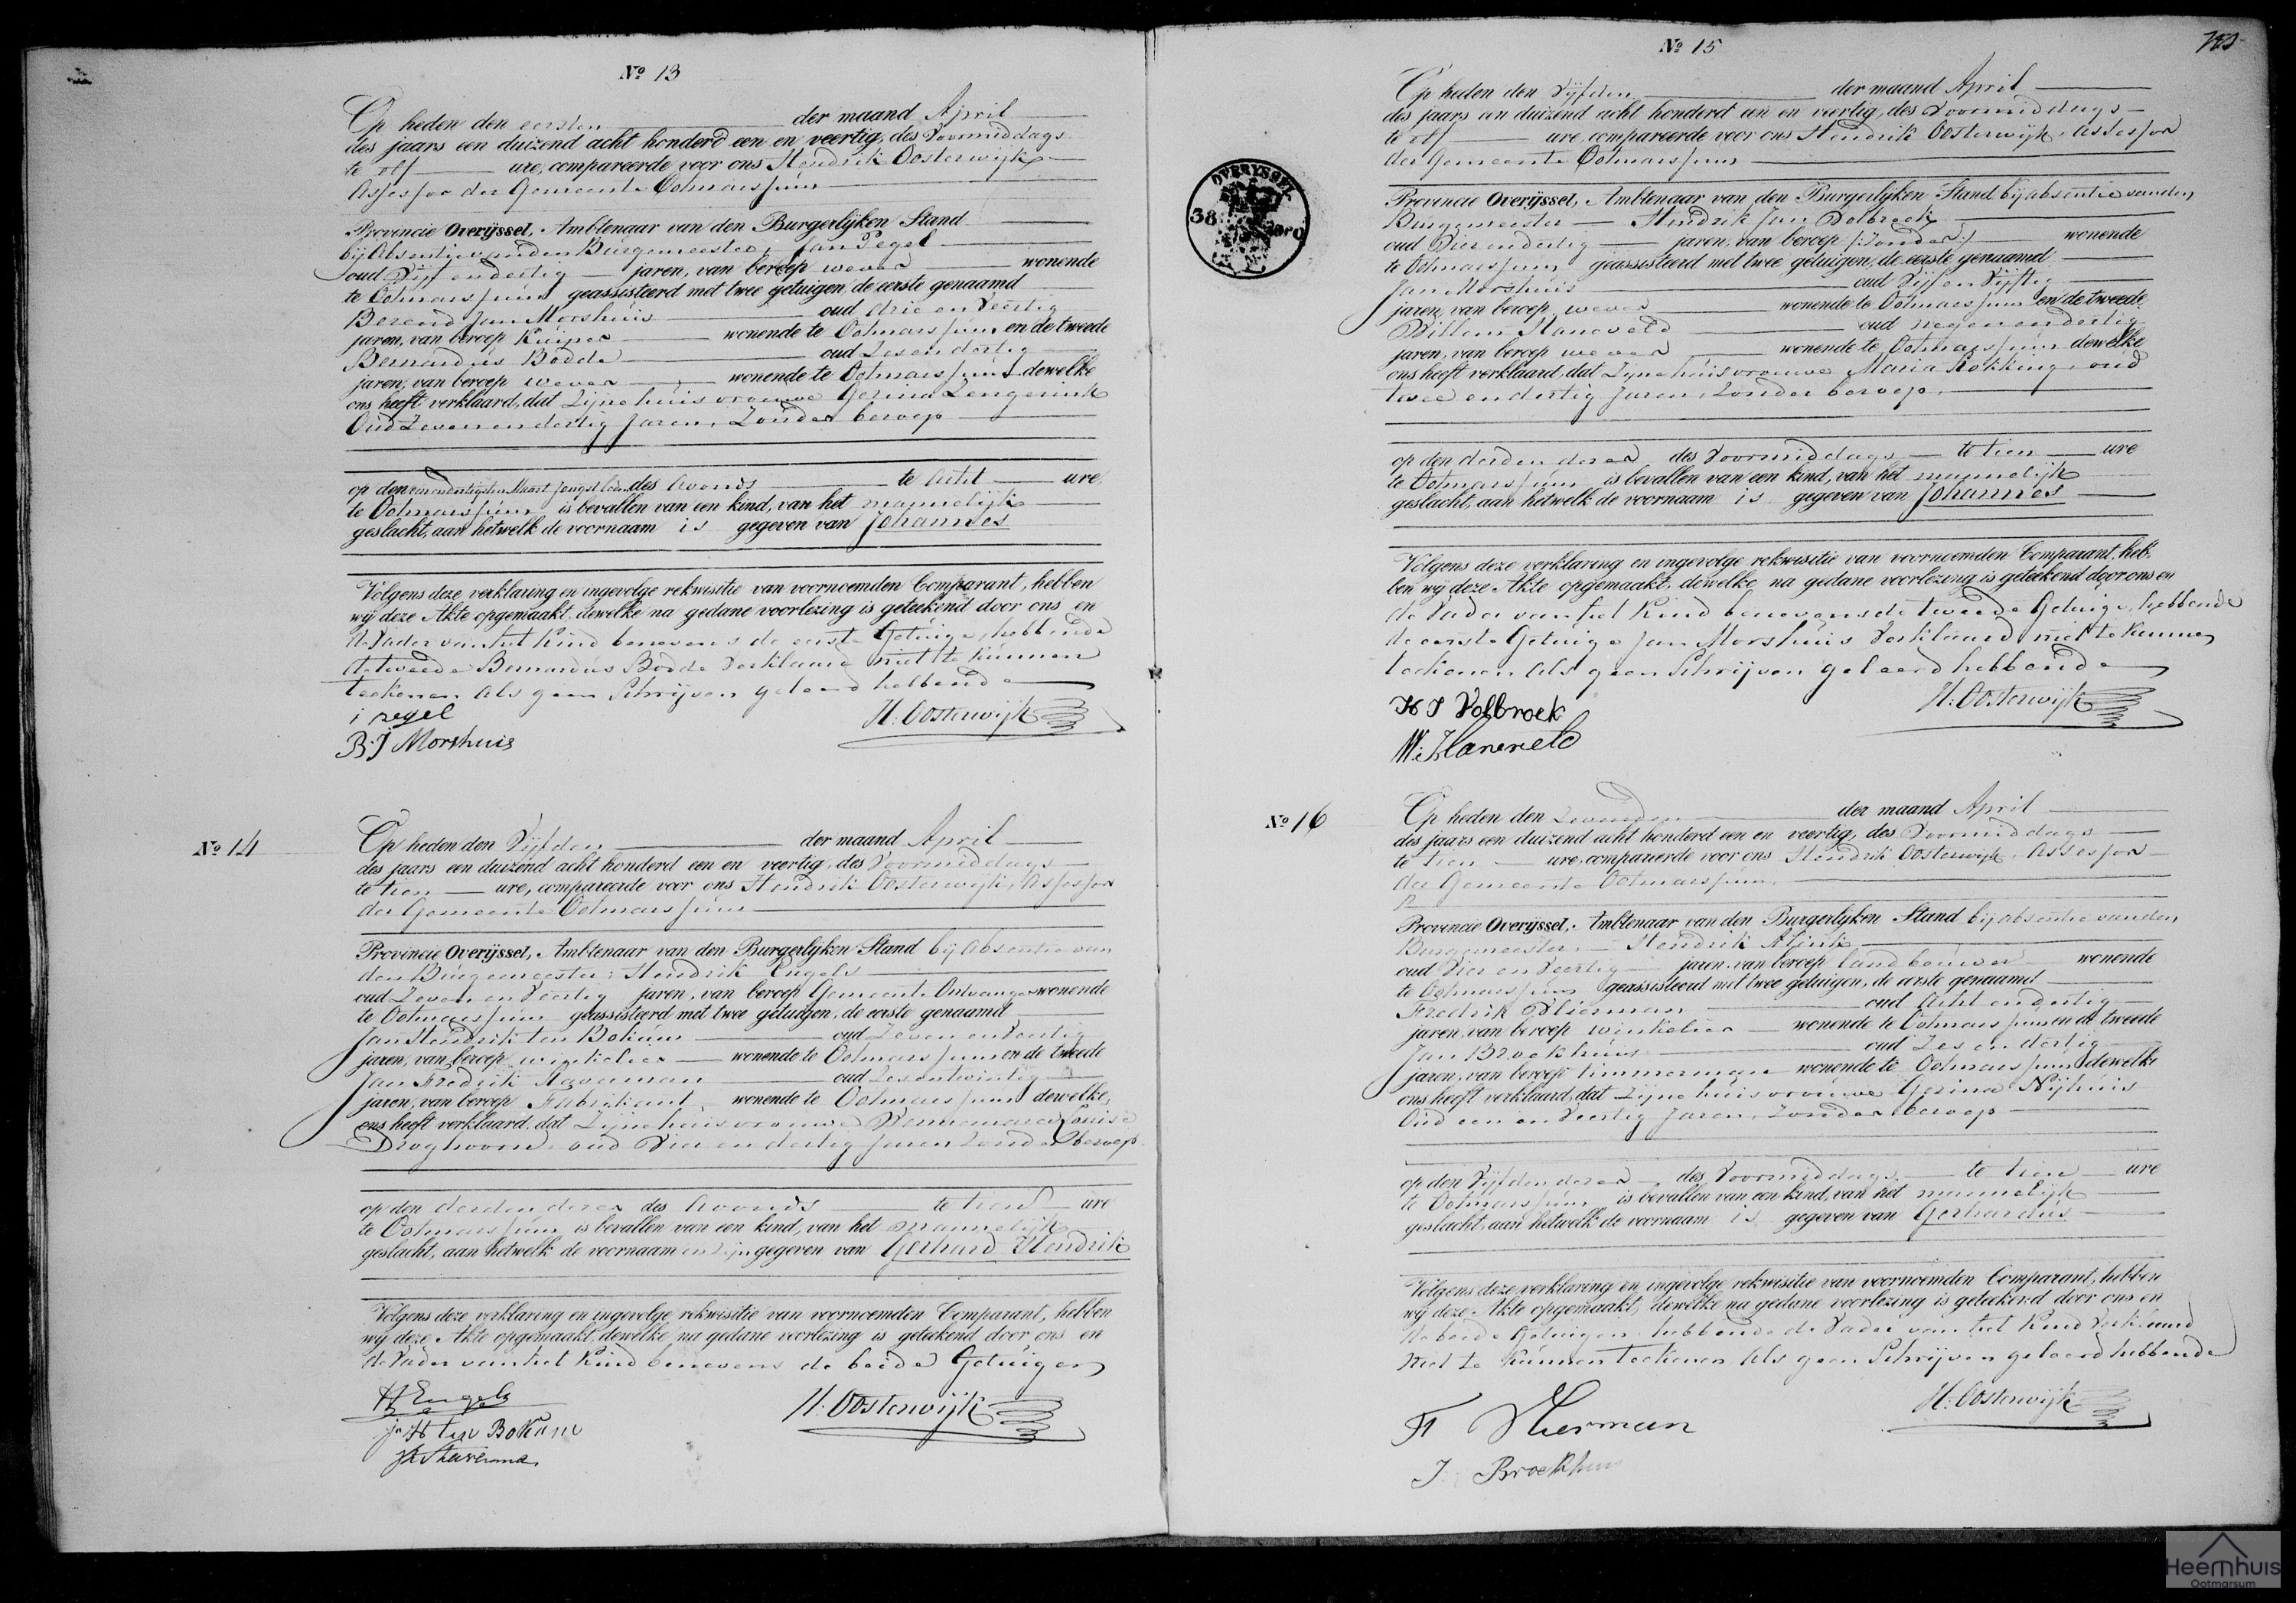 Nº 13
Op heden den eersten der maand April
des jaars een duizend acht honderd een en veertig, des Voormiddags
te elf ure, compareerde voor ons Hendrik Oosterwijk
Assessor der Gemeente Ootmarssum
Provincie Overijssel, Ambtenaar van den Burgerlijken Stand
bij Absentie van den Burgemeester, Jan Pegel
oud Vijf en dertig jaren, van beroep wever wonende
te Ootmarssum geassisteerd met twee getuigen, de eerste genaamd
Berend Jan Morshuis oud drie en Veertig
jaren, van beroep Kuiper wonende te Ootmarssum en de tweede
Bernardus Bodde oud Zes en dertig
jaren, van beroep wever wonende te Ootmarssum dewelke
ons heeft verklaard, dat Zijne huisvrouwe Gezina Lengerink
Oud Zeven en dertig Jaren, Zonder beroep
op den een en dertigsten Maart Jongstleden des Avonds te Acht ure
te Ootmarssum is bevallen van een kind, van het mannelijk
geslacht, aan hetwelk de voornaam is gegeven van Johannes
Volgens deze verklaring en ingevolge rekwisitie van voornoemden Comparant, hebben
wij deze Akte opgemaakt, dewelke na gedane voorlezing is geteekend door ons en
de Vader van het Kind benevens de eerste Getuige, hebbende
de tweede Bernardus Bodde Verklaard niet te kunnen
teekenen Als geen Schrijven geleerd hebbende
i pegel H: Oosterwijk
B:J Morshuis
Nº 14
Op heden den Vijfden der maand April
des jaars een duizend acht honderd een en veertig, des Voormiddags
te tien ure, compareerde voor ons Hendrik Oosterwijk, Assessor
der Gemeente Ootmarssum
Provincie Overijssel, Ambtenaar van den Burgerlijken Stand bij Absentie van
den Burgemeester: Hendrik Engels
oud Zeven en Veertig jaren, van beroep Gemeente Ontvanger wonende
te Ootmarssum geassisteerd met twee getuigen, de eerste genaamd
Jan Hendrik ten Bokum oud Zeven en Veertig
jaren, van beroep winkelier wonende te Ootmarssum en de tweede
Jan Fredrik Staverman oud Zes en twintig
jaren, van beroep Fabrikant wonende te Ootmarssum dewelke,
ons heeft verklaard, dat Zijne huisvrouwe Louise
Droghoorn, oud Vier en dertig Jaren Zonder beroep
op den derden dezer des Avonds te tien ure
te Ootmarssum is bevallen van een kind, van het mannelijk
geslacht, aan hetwelk de voornaam en zijn gegeven van Gerhard Hendrik
Volgens deze verklaring en ingevolge rekwisitie van voornoemden Comparant, hebben
wij deze Akte opgemaakt, dewelke na gedane voorlezing is geteekend door ons en
de Vader van het Kind benevens de beide Getuigen
H Engels H: Oosterwijk
JH ten Bokum
Nº 15
Op heden den Vijfden der maand April
des jaars een duizend acht honderd een en veertig, des Voormiddags
te elf ure, compareerde voor ons Hendrik Oosterwijk, Assessor
der Gemeente Ootmarssum
Provincie Overijssel, Ambtenaar van den Burgerlijken Stand bij Absentie van den
Burgemeester Hendrik Jan Volbroek
oud Vier en dertig jaren, van beroep /:Zonder:/ wonende
te Ootmarssum geassisteerd met twee getuigen, de eerste genaamd
Jan Morshuis oud Vijf en Vijftig
jaren, van beroep wever wonende te Ootmarssum en de tweede
Willem Haneveld oud negen en dertig
jaren, van beroep wever wonende te Ootmarssum dewelke
ons heeft verklaard, dat Zijne huisvrouwe Maria Kokking, oud
twee en dertig Jaren, Zonder beroep,
op den derden dezer des Voormiddags te tien ure
te Ootmarssum is bevallen van een kind, van het mannelijk
geslacht, aan hetwelk de voornaam is gegeven van Johannes
Volgens deze verklaring en ingevolge rekwisitie van voornoemden Comparant, heb-
ben wij deze Akte opgemaakt, dewelke na gedane voorlezing is geteekend door ons en
de Vader van het Kind benevens de tweede Getuige, hebbende
de eerste Getuige Jan Morshuis Verklaard niet te kunnen
teekenen Als geen Schrijven geleerd hebbende
H J Volbroek H: Oosterwijk
W: Haneveld
OVERYSSEL
38
Nº 16
Op heden den Zevenden der maand April
des jaars een duizend acht honderd een en veertig, des Voormiddags
te tien ure, compareerde voor ons Hendrik Oosterwijk, Assessor
der Gemeente Ootmarssum,
Provincie Overijssel, Ambtenaar van den Burgerlijken Stand bij Absentie van den
Burgemeester, Hendrik Alink
oud Vier en Veertig jaren, van beroep landbouwer wonende
te Ootmarssum geassisteerd met twee getuigen, de eerste genaamd
Fredrik Vlierman oud Acht en dertig
jaren, van beroep winkelier wonende te Ootmarssum en de tweede
Jan Broekhuis oud Zes en dertig
jaren, van beroep timmerman wonende te Ootmarssum dewelke
ons heeft verklaard, dat Zijne huisvrouwe Gezina Nijhuis
Oud een en Veertig Jaren, Zonder beroep
op den Vijfden dezer des Voormiddags te tien ure
te Ootmarssum is bevallen van een kind, van het mannelijk
geslacht, aan hetwelk de voornaam is gegeven van Gerhardus
Volgens deze verklaring en ingevolge rekwisitie van voornoemden Comparant, hebben
wij deze Akte opgemaakt, dewelke na gedane voorlezing is geteekend door ons en
de beide Getuigen hebbende de Vader van het Kind Verklaard
niet te kunnen teekenen Als geen Schrijven geleerd hebbende
F Vlierman H: Oosterwijk
J. Broekhuis
Heemhuis
Ootmarsum